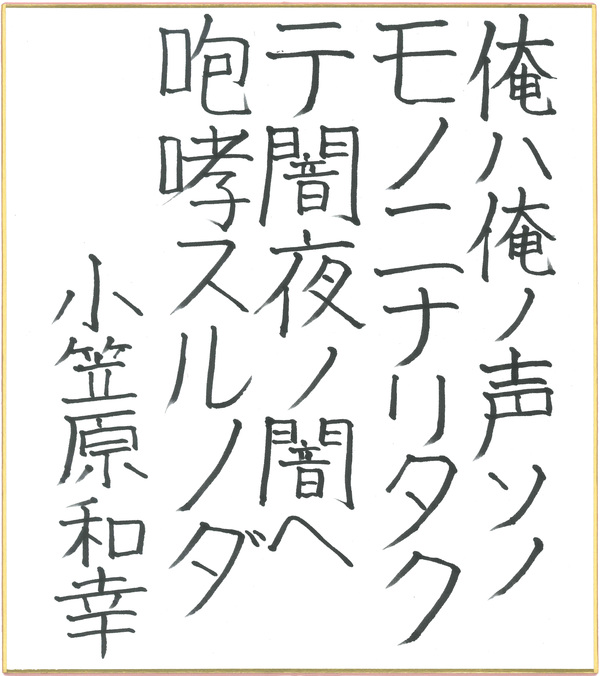 俺ハ俺ノ声ソノ
モノニナリタク
テ闇夜ノ闇ヘ
咆哮スルノダ
小笠原和幸